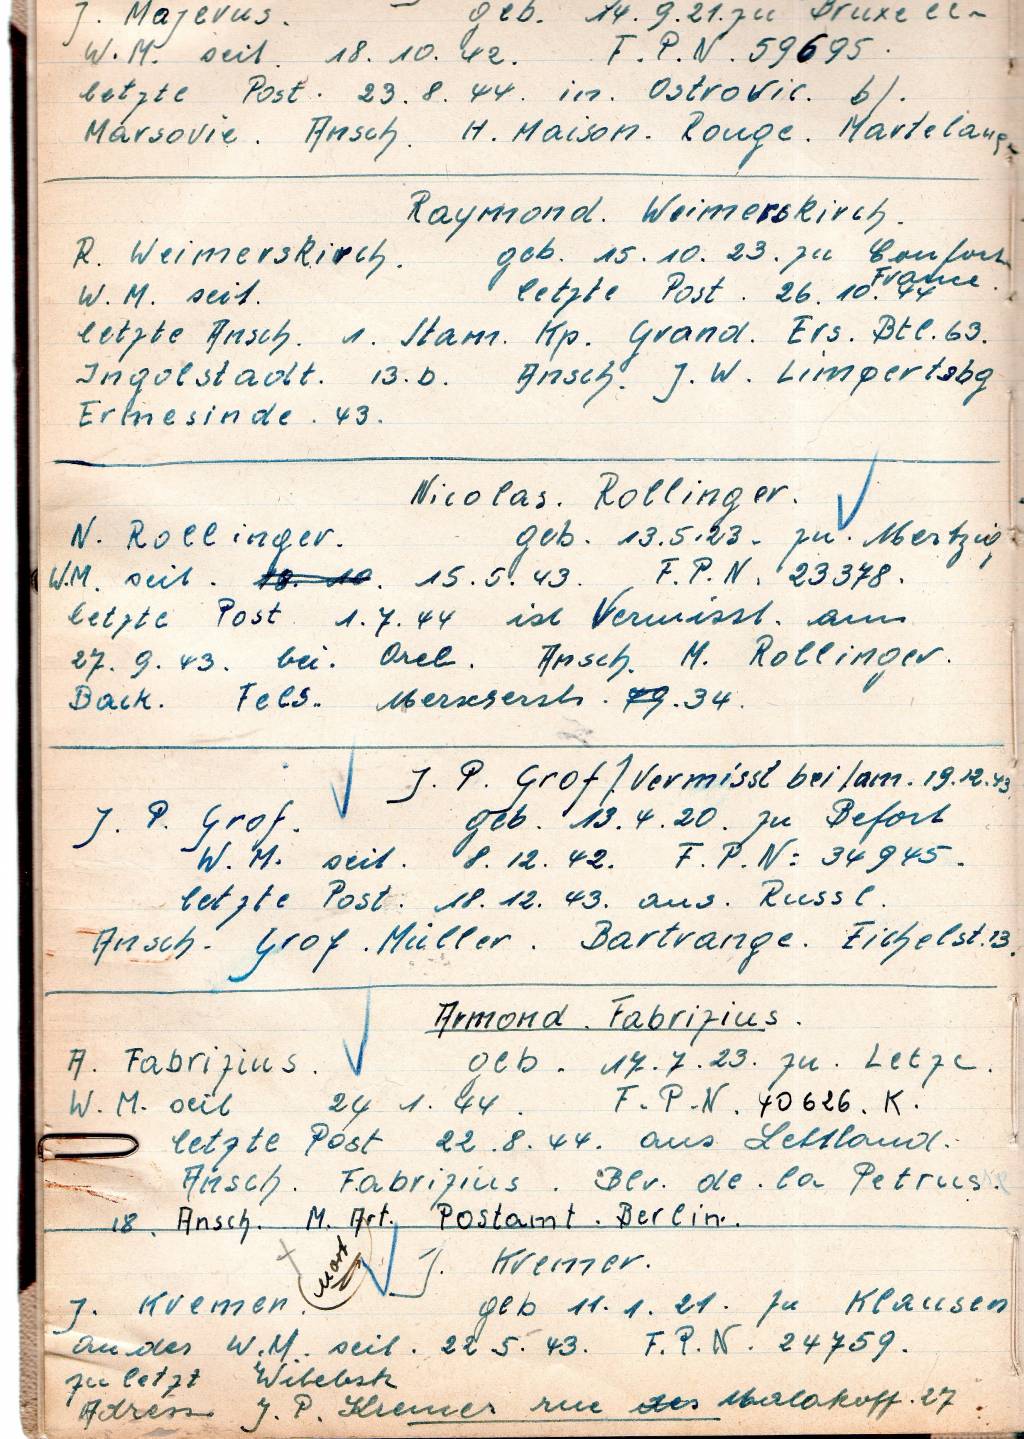 J. Majerus. geb. 14.9.21. zu Bruxell
W.M. seit. 18.10.42. F.P.N. 59695.
letzte Post. 23.8.44. in. Ostrovic. b/.
Marsovie. Ansch. H. Maison. Rouge. Martelange
Raymond. Weimerskirch.
R. Weimerskirch. geb. 15.10.23. zu Confort
France.
W.M. seit. letzte Post. 26.10.44
letzte Ansch. 1. Stam. Kp. Grand. Ers. Btl. 63.
Ingolstadt. 13.b. Ansch. J.W. Limpertsbg
Ermesinde. 43.
Nicolas. Rollinger.
N. Rollinger. geb. 13.5.23. zu. Mertzig
W.M. seit. 18.10. 15.5.43. F.P.N. 23378.
letzte Post 1.7.44 ist Vermisst. am
27.9.43. bei. Orel. Ansch. M. Rollinger.
Back. Fels. 79.34.
J.P. Grof / Vermisst bei/am. 19.12.43
J.P. Grof. geb. 13.4.20. zu Befort
W.M. seit. 8.12.42. F.P.N: 34945.
letzte Post. 18.12.43. aus. Russl.
Ansch. Grof. Müller. Bartrange. Eichelst. 13.
Armond. Fabrizius.
A. Fabrizius. geb. 17.7.23. zu. Letze.
W.M. seit 24 1.44. F.P.N. 40626. K.
letzte Post 22.8.44. aus Lettland.
Ansch. Fabrizius. Blv. de. la Petrus.
18. Ansch. M. Art. Postamt. Berlin.
J. Kremer.
mort
J. Kremer. geb 11.1.21. zu Klausen
an der W.M. seit. 22.5.43. F.P.N. 24759.
zuletzt Witebsk
Adress J.P. Kremer rue des Malakoff. 27